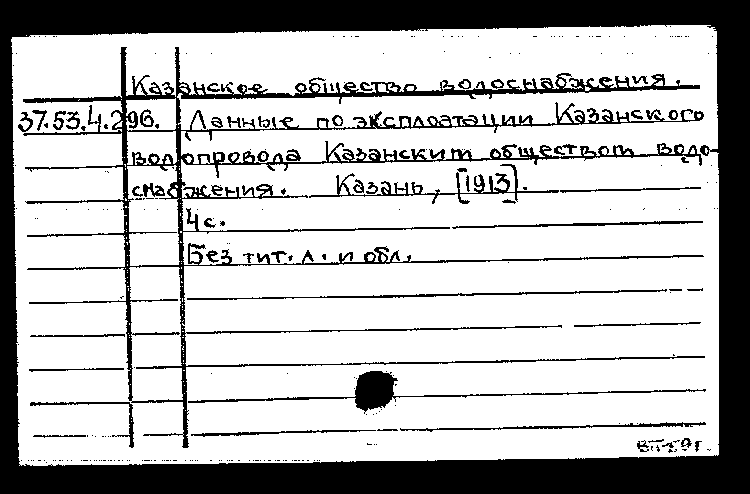 Казанское общество водоснабжения.
37.53.4.296. Данные по эксплоатации Казанского
водопровода Казанским обществом водо-
снабжения. Казань, [1913].
4 с.
Без тит. л. и обл.